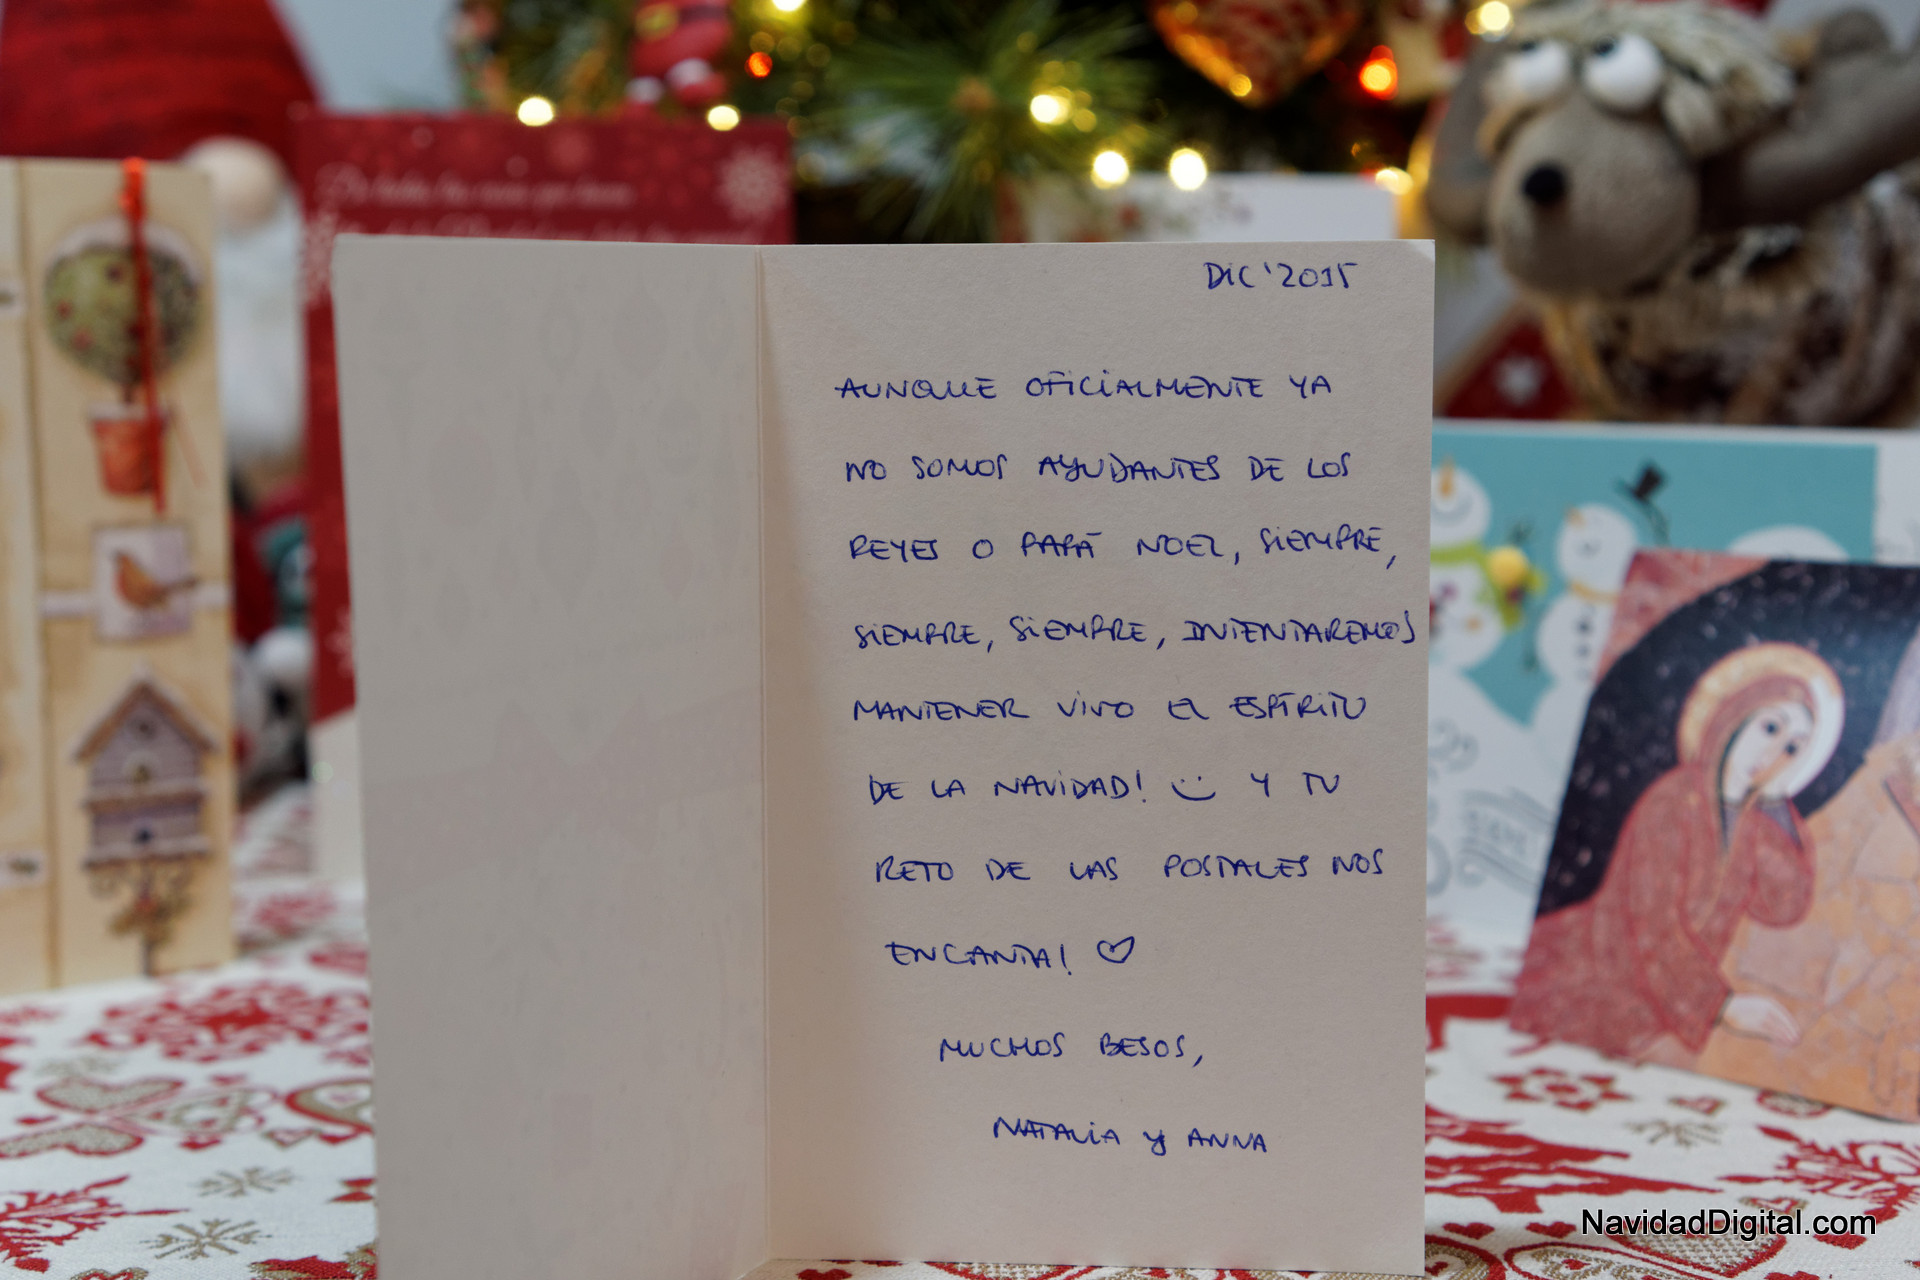 DIC '2015
AUNQUE OFICIALMENTE YA
NO SOMOS AYUDANTES DE LOS
REYES O PAPÁ NOEL, SIEMPRE,
SIEMPRE, SIEMPRE, INTENTAREMOS
MANTENER VIVO EL ESPÍRITU
DE LA NAVIDAD! Y TU
RETO DE LAS POSTALES NOS
ENCANTA! ♡
MUCHOS BESOS,
NATALIA Y ANNA
NavidadDigital.com